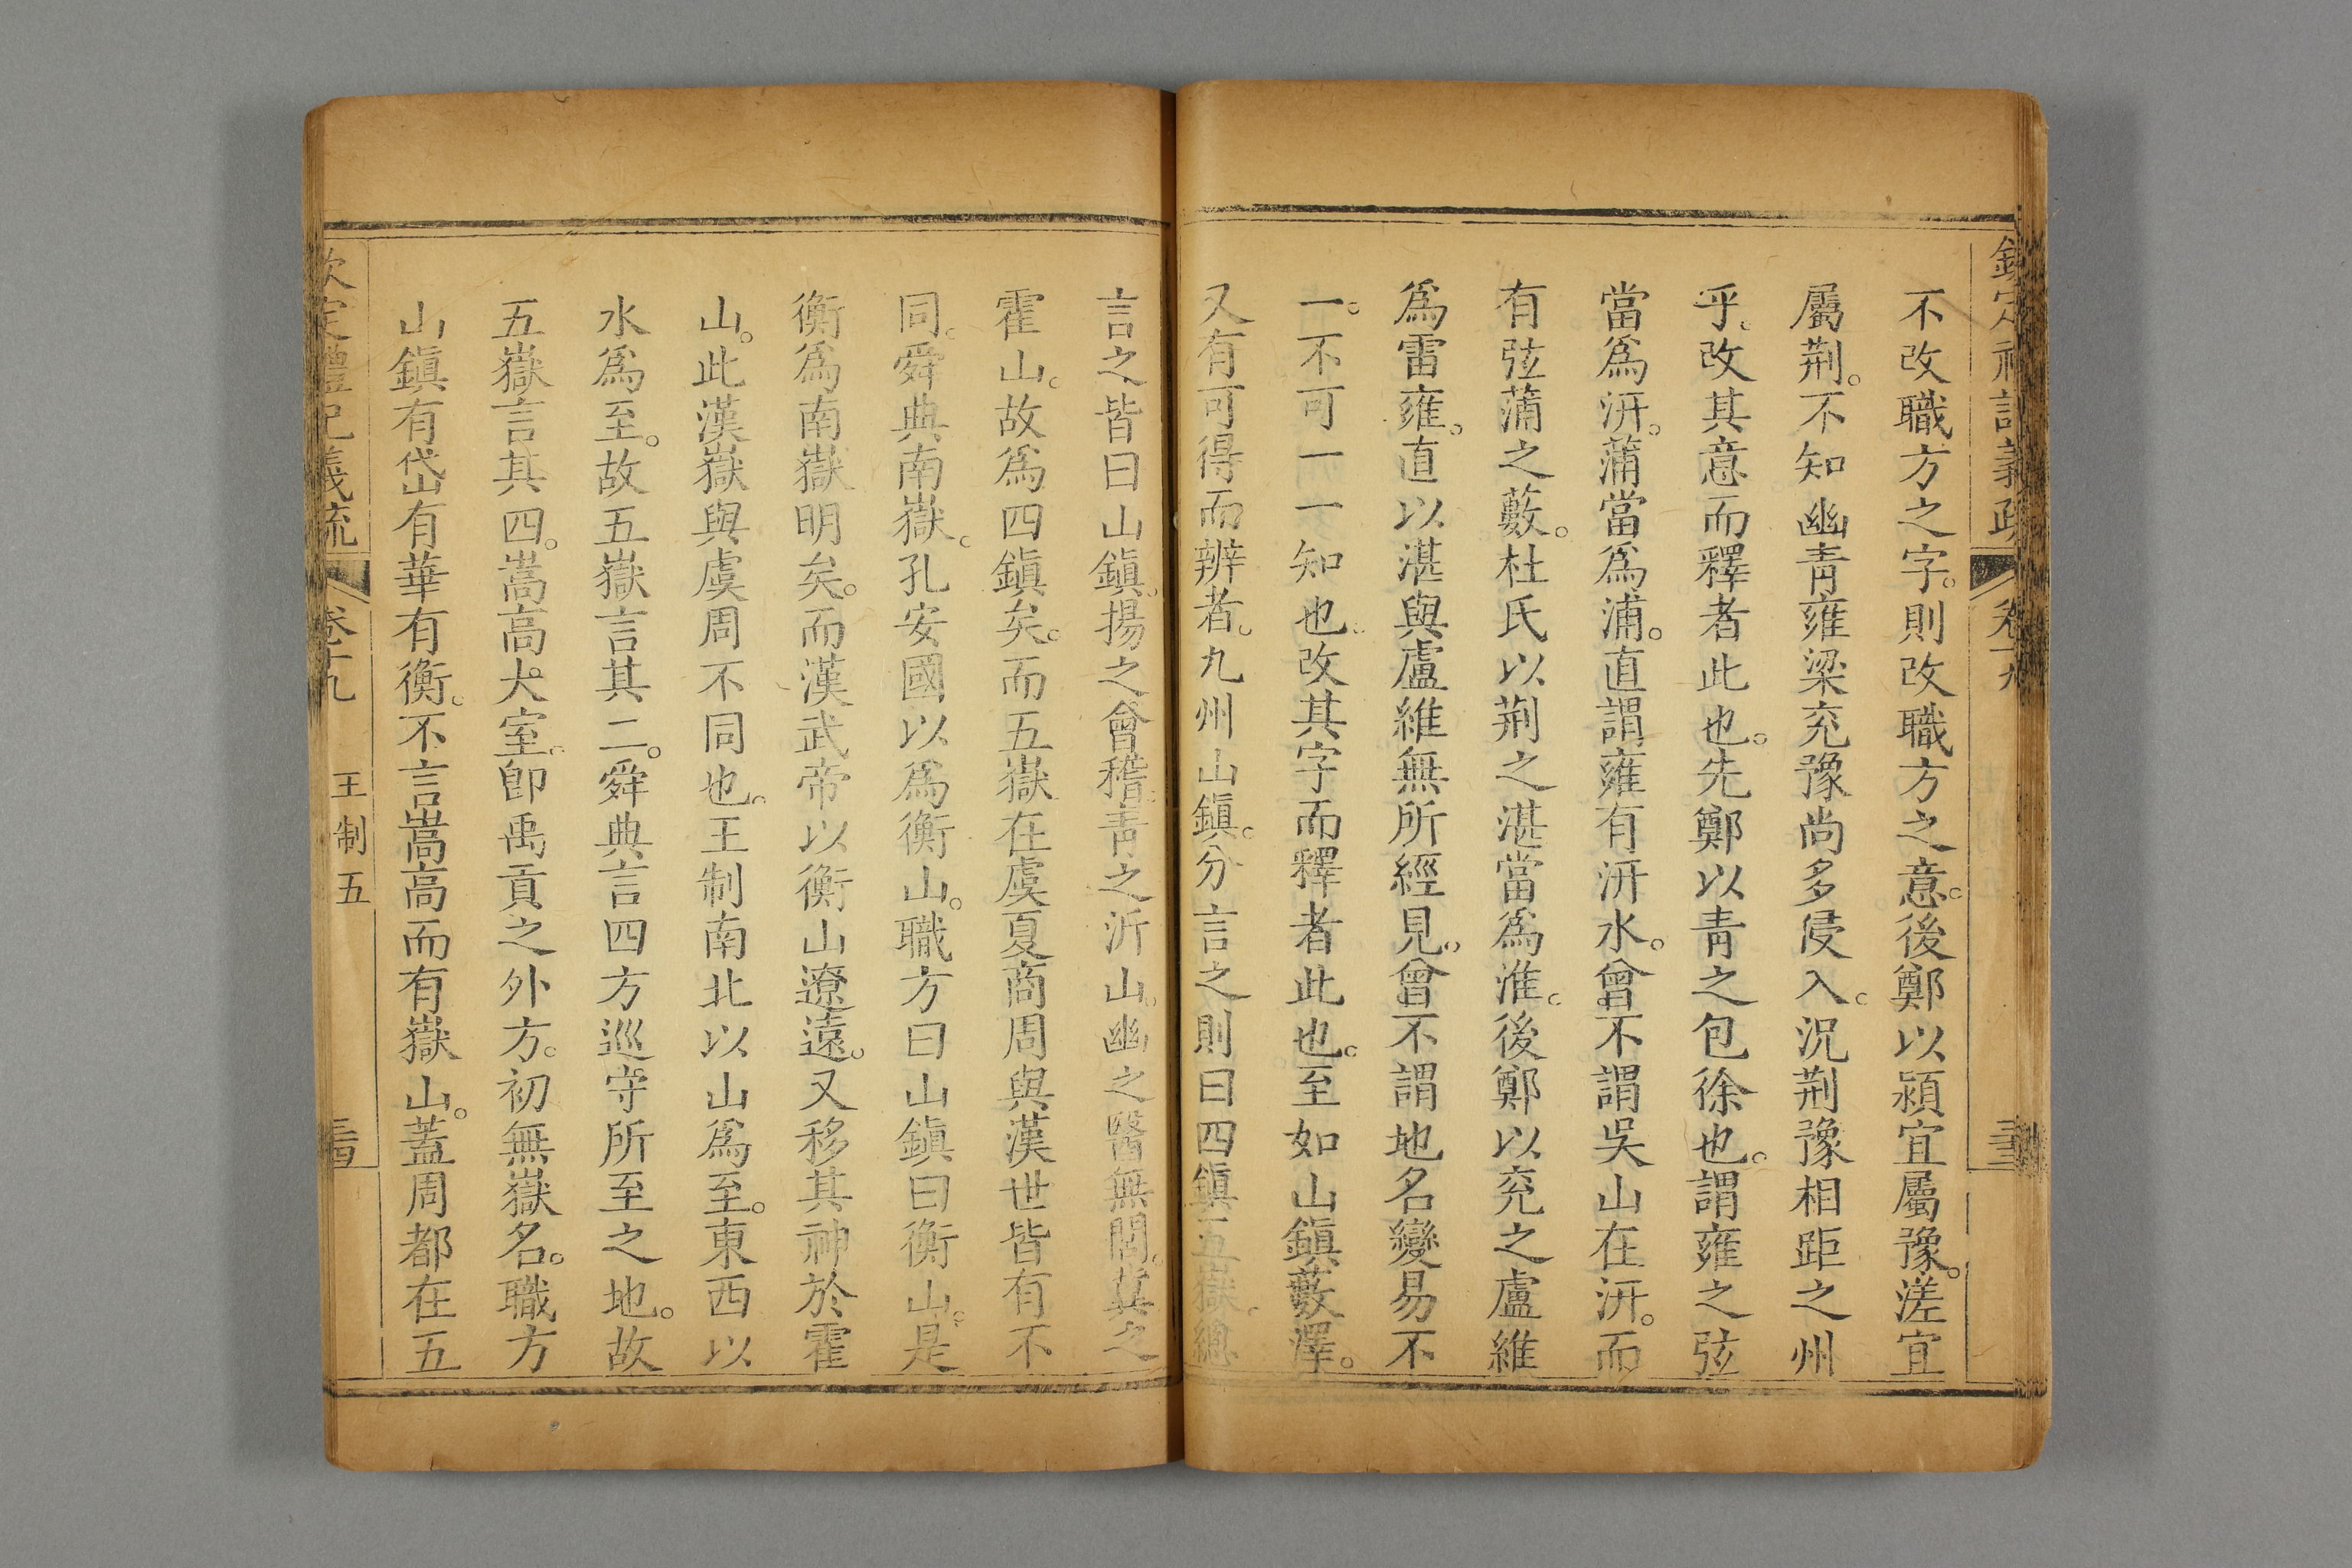 欽定禮記義疏 卷十九
不改職方之字。則改職方之意。後鄭以潁宜屬豫。溠宜
屬荆。不知幽靑雍梁兖豫尚多侵入。況荆豫相距之州
乎。改其意而釋者此也。先鄭以靑之包徐也。謂雍之弦
當爲汧。蒲當爲浦。直謂雍有汧水。曾不謂吳山在汧。而
有弦蒲之藪。杜氏以荆之湛當爲淮。後鄭以兖之盧維
爲雷雍。直以湛與盧維無所經見。曾不謂地名變易不
一。不可一一知也。改其字而釋者此也。至如山鎭藪澤。
又有可得而辨者。九州山鎭。分言之則曰四鎭五嶽。總
言之皆曰山鎭。揚之會稽靑之沂山。幽之醫無閭。冀之
霍山。故爲四鎭矣。而五嶽在虞夏商周與漢世皆有不
同。舜典南嶽。孔安國以爲衡山。職方曰山鎭曰衡山。是
衡爲南嶽明矣。而漢武帝以衡山遼遠。又移其神於霍
山。此漢嶽與虞周不同也。王制南北以山爲至。東西以
水爲至。故五嶽言其二。舜典言四方巡守所至之地。故
五嶽言其四。嵩高大室。卽禹貢之外方。初無嶽名。職方
山鎭有岱山有華有衡。不言嵩高而有嶽山。蓋周都在五
欽定禮記義疏 卷十九 王制五